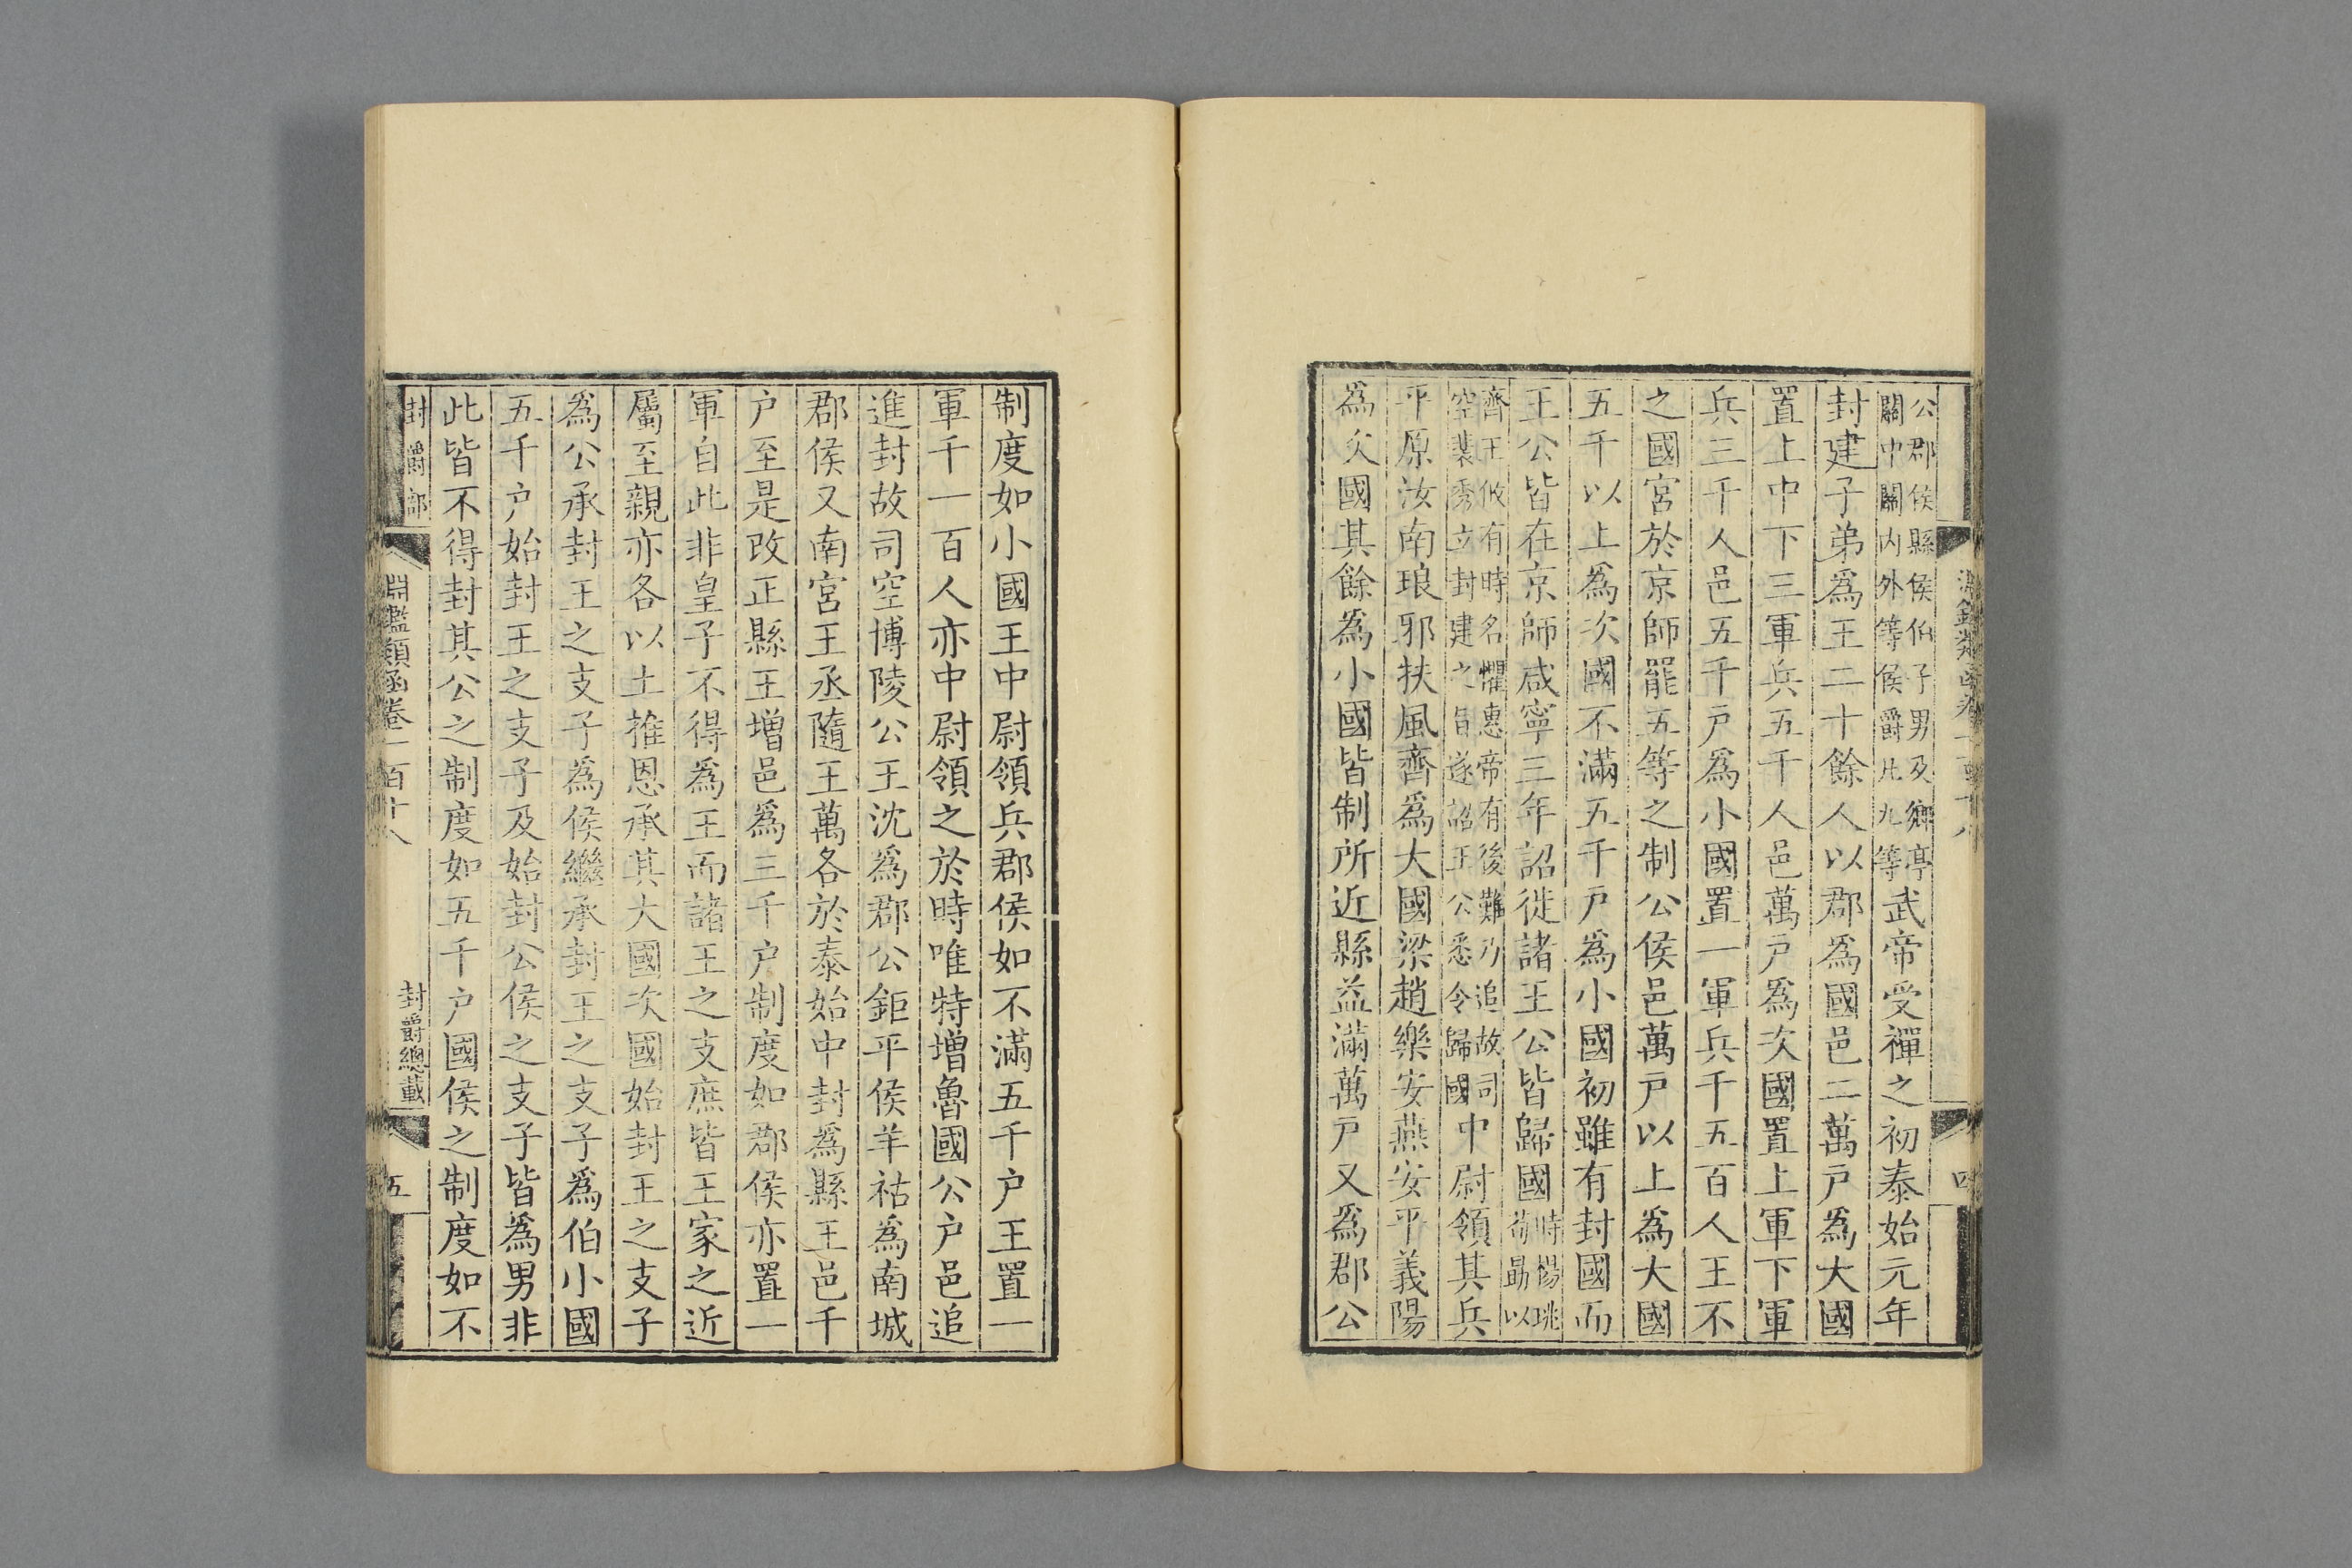 淵鑑類函卷一百十八
四
公郡侯縣侯伯子男及鄉亭
關中關内外等侯爵凡九等
武帝受禪之初泰始元年
封建子弟爲王二十餘人以郡爲國邑二萬戸爲大國
置上中下三軍兵五千人邑萬戸爲次國置上軍下軍
兵三千人邑五千戸爲小國置一軍兵千五百人王不
之國宮於京師罷五等之制公侯邑萬戸以上爲大國
五千以上爲次國不滿五千戸爲小國初雖有封國而
王公皆在京師咸寧三年詔徙諸王公皆歸國
時楊珧
荀勗以
齊王攸有時名懼惠帝有後難乃追故司
空裴秀立封建之旨遂詔王公悉令歸國
中尉領其兵
平原汝南琅邪扶風齊爲大國梁趙樂安燕安平義陽
爲次國其餘爲小國皆制所近縣益滿萬戸又爲郡公
制度如小國王中尉領兵郡侯如不滿五千户王置一
軍千一百人亦中尉領之於時唯特增魯國公户邑追
進封故司空博陵公王沈爲郡公鉅平侯羊祜爲南城
郡侯又南宮王丞隨王萬各於泰始中封爲縣王邑千
户至是改正縣王增邑爲三千户制度如郡侯亦置一
軍自此非皇子不得爲王而諸王之支庶皆王家之近
屬至親亦各以土推恩承其大國次國始封王之支子
爲公承封王之支子爲侯繼承封王之支子爲伯小國
五千户始封王之支子及始封公侯之支子皆爲男非
此皆不得封其公之制度如五千户國侯之制度如不
封爵部
淵鑑類函卷一百十八
封爵總載
五